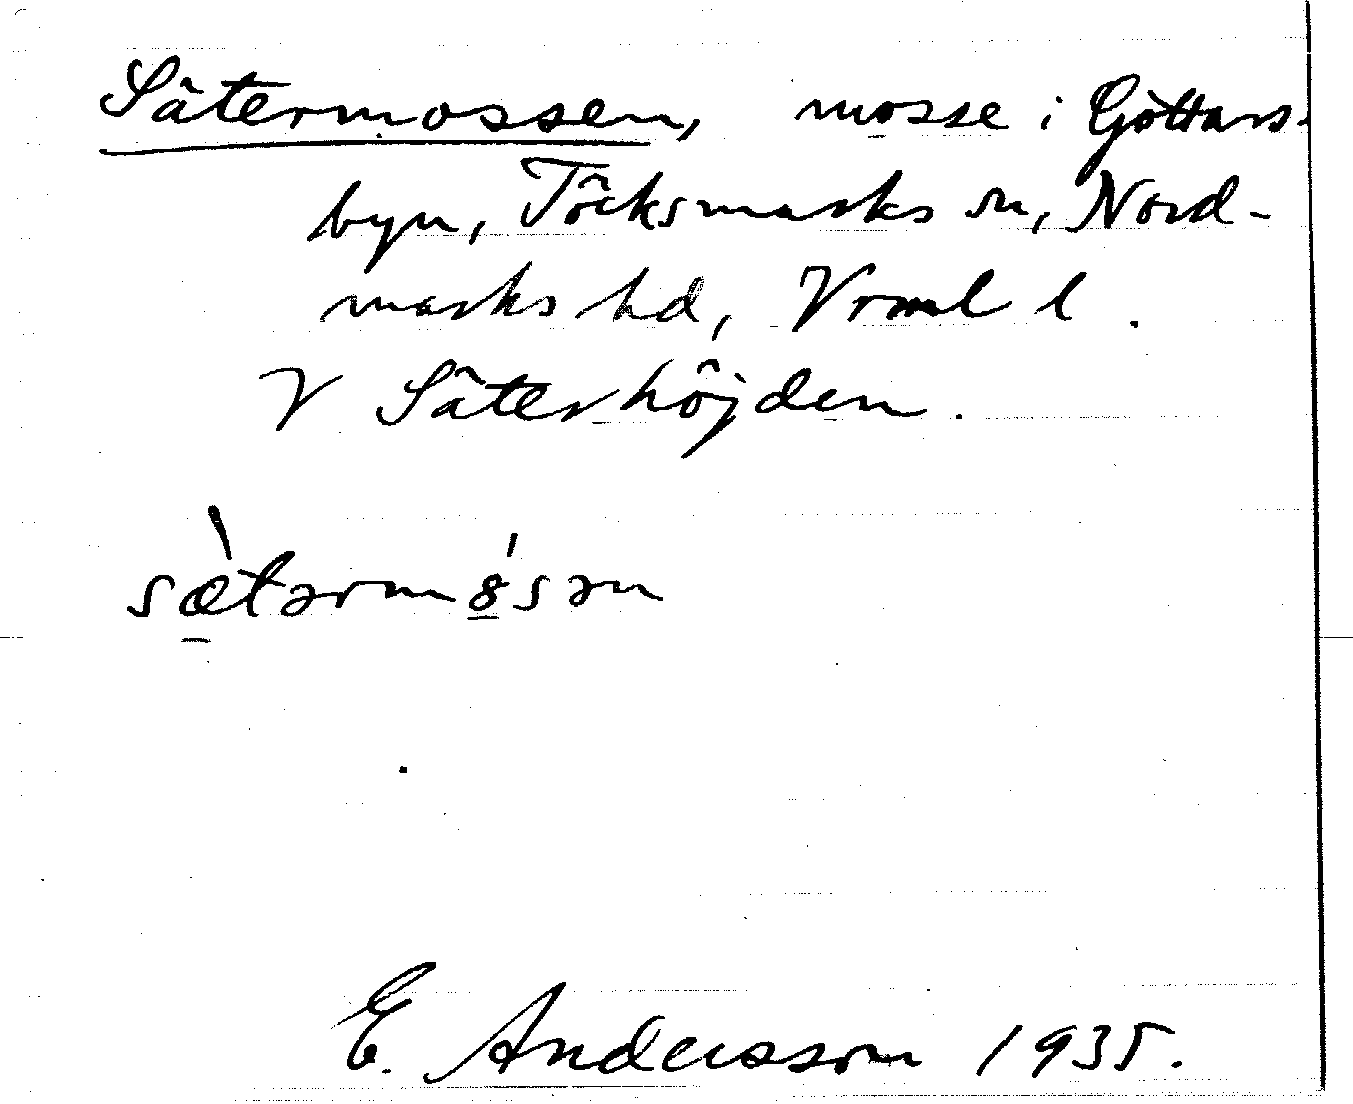 Sätermossen, mosse i Göttars-
byn, Töcksmarks sn, Nord-
marks hd, Vrml l.
V Säterhöjden.
sæ̀tərmȣ́sən
E. Andersson 1935.